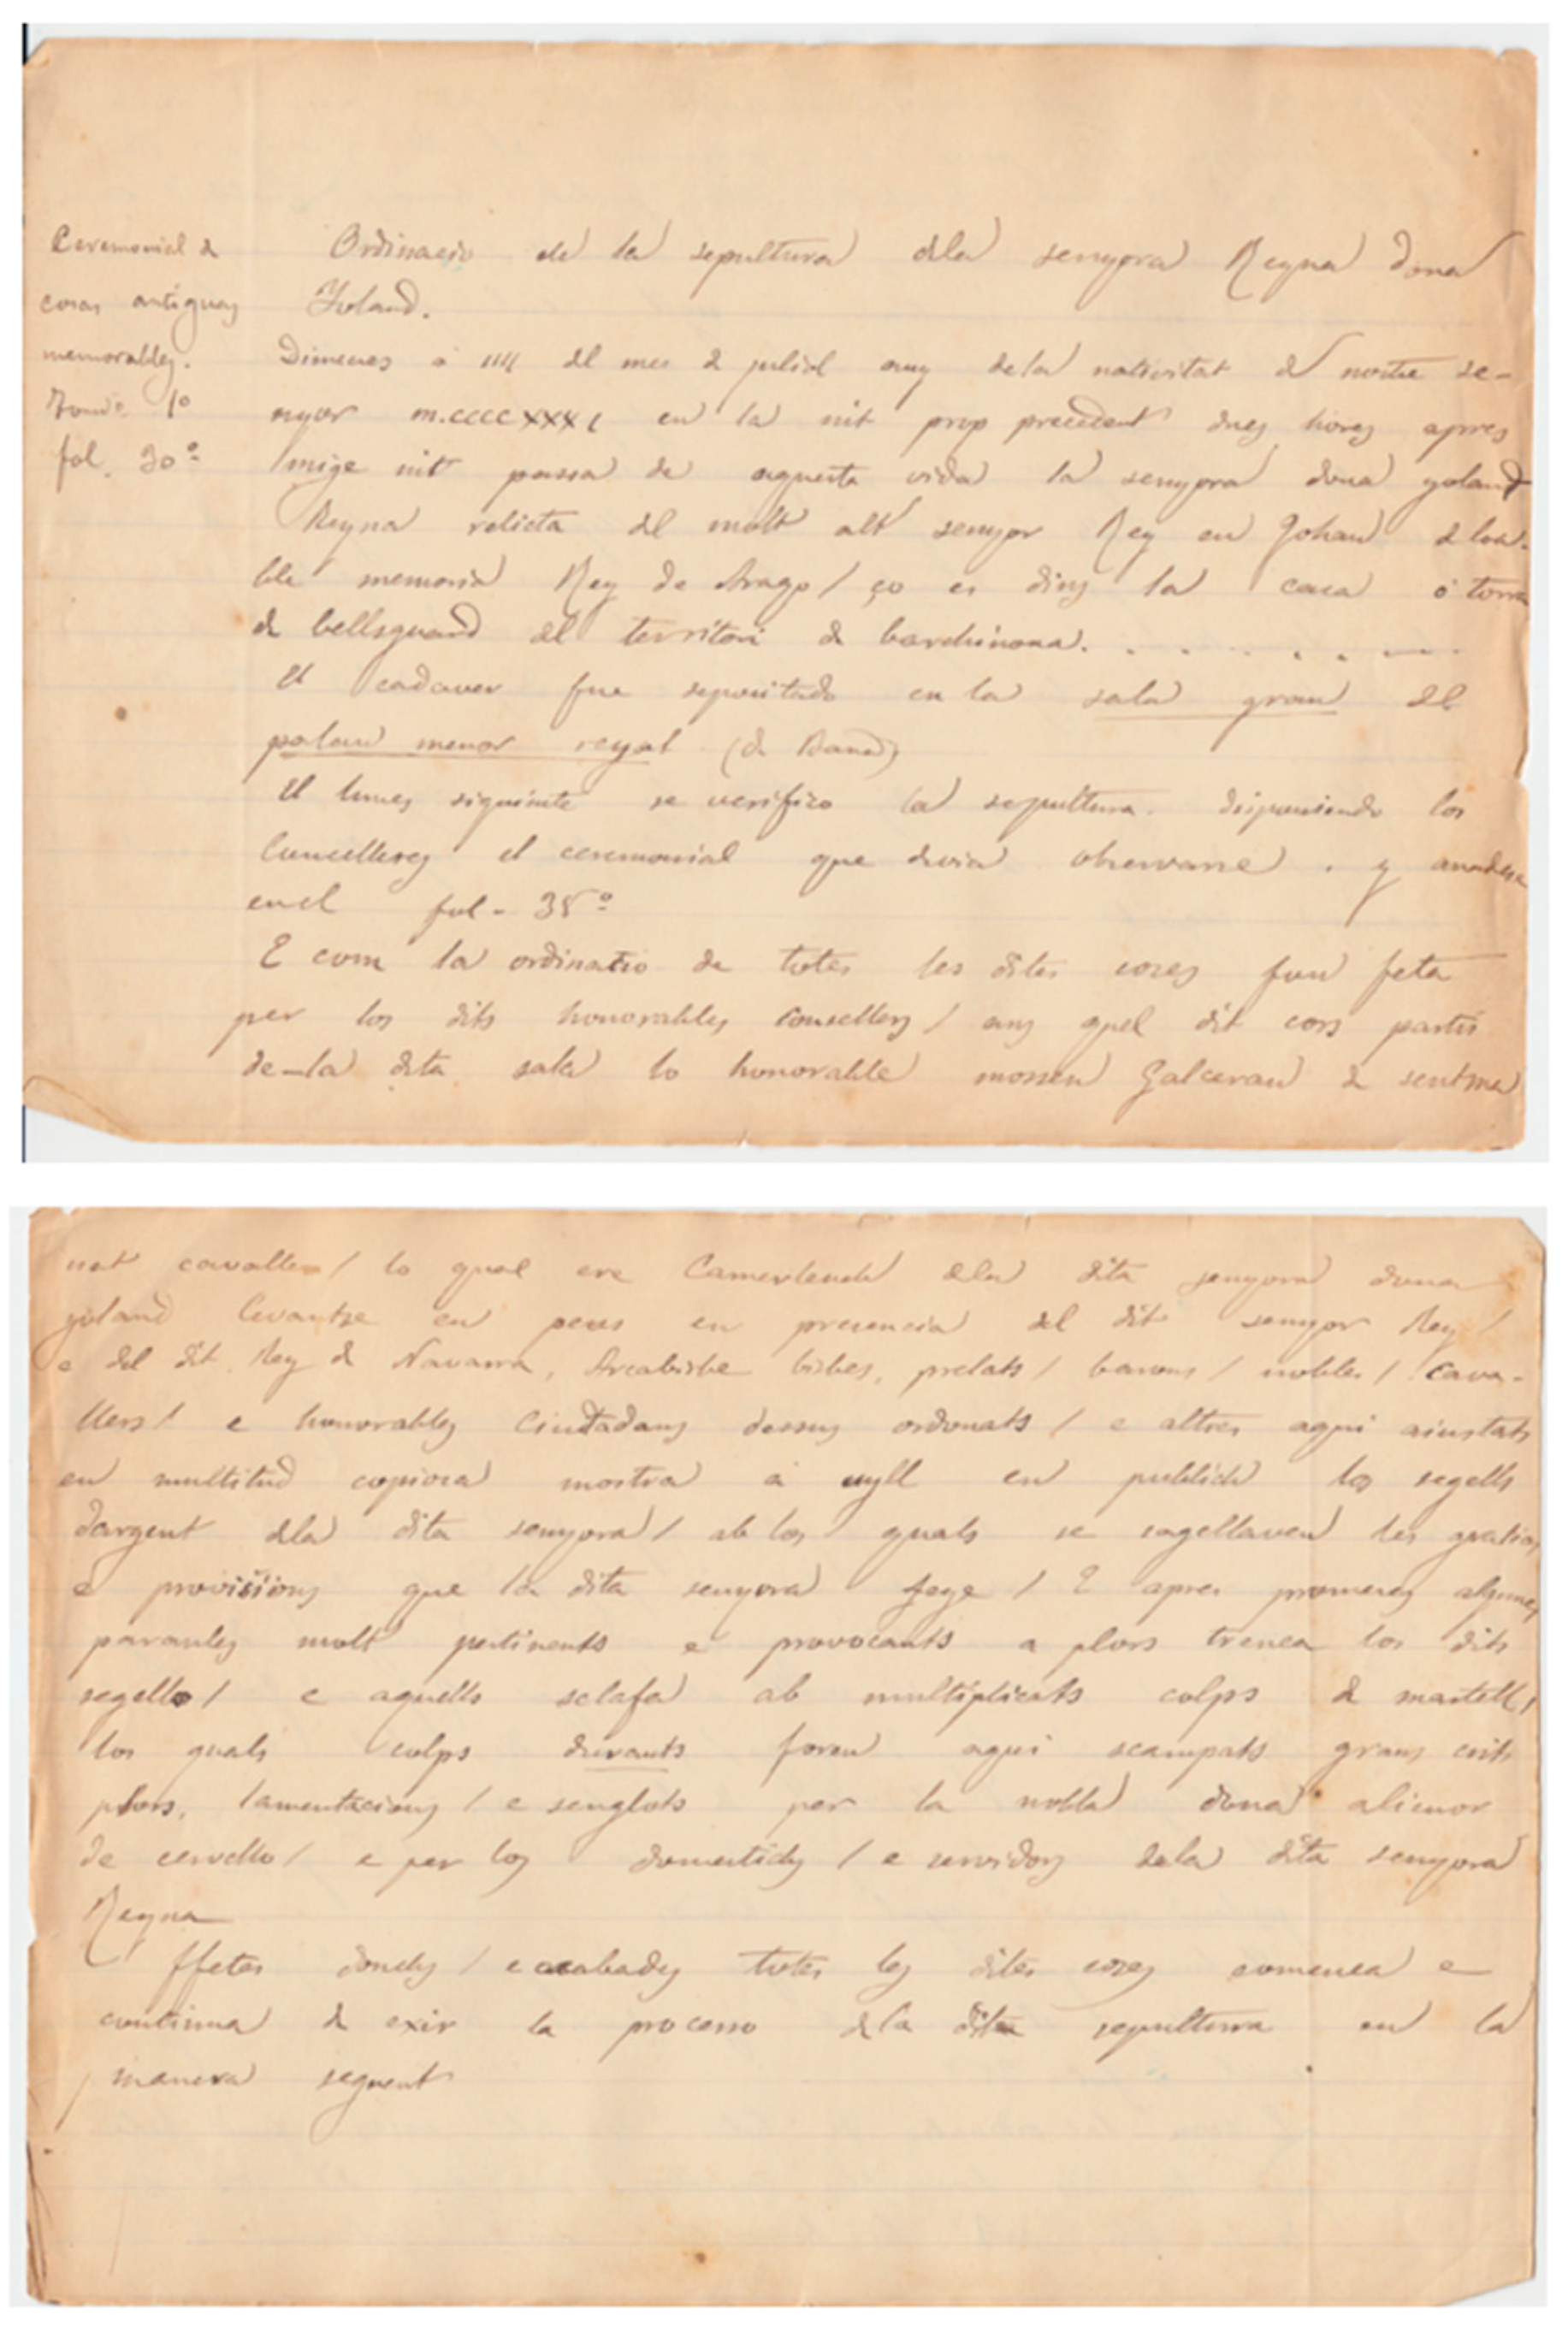 Ceremonial d
cosas antiguas
memorables.
Tomo 1º
fol. 30º
Ordinacio de la sepultura dela senyora Reyna dona
Yoland.
Dimecres a IIII del mes d juliol any dela nativitat d nostre se-
nyor m.ccccxxxi en la nit prop precedent dues hores apres
mige nit passa de aquesta vida la senyora dona yoland
Reyna relicta del molt alt senyor Rey en Johan d loa-
ble memoria Rey de Arago / ço es dins la casa o torre
d bellsguard del territori d barchinona. . . . . . . — .
El cadaver fue depositado en la sala gran del
palau menor reyal (de
El lunes siguiente se verifico la sepultura. disponiendo los
Concelleres el ceremonial que devia observarse . y anadese
en el fol- 38º
E com la ordinatio de totes les dites coses fou feta
per los dits honorables consellers / ans quel dit cors partis
de-la dita sala lo honorable mossen Galceran d sentme
nat cavaller / lo qual ere Camerlench dela dita senyora dona
yoland levantse en peus en presencia del dit senyor Rey /
e del dit Rey d Navarra, Arcabisbe bisbes, prelats / barons / nobles / cava-
llers / e honorables Ciutadans dessus ordonats / e altres aqui aiustats
en multitud copiosa mostra a uyll en publich los segells
dargent dela dita senyora / ab los quals se sagellaven les gratias
e provisions que la dita senyora feye / E apres promeses algunes
paraules molt pertinents e provocants a plors trenca los dits
segells / e aquells sclafa ab multiplicats colps d martell /
los quals colps durants foren aqui scampats grans crits
plors, lamentacions / e senglots per la nobla dona alienor
de cervello / e per los domestichs / e servidors dela dita senyora
Reyna
ffetes donchs / e acabades totes les dites coses comença e
continua d exir la processo dela dita sepultura en la
manera seguent